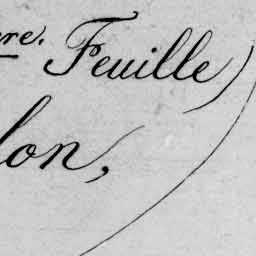 re. Feuille)
lon,